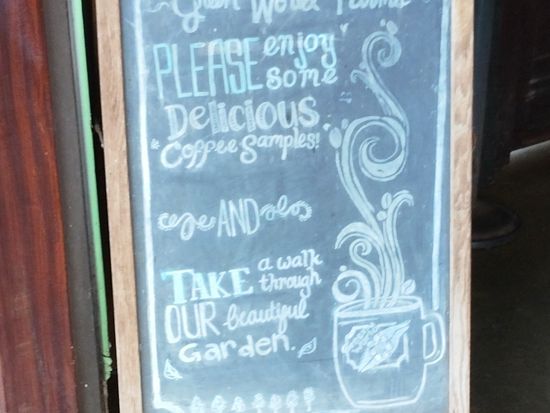 Green World Farms
PLEASE enjoy
some
Delicious
Coffee Samples!
AND
TAKE a walk
through
OUR beautiful
Garden.